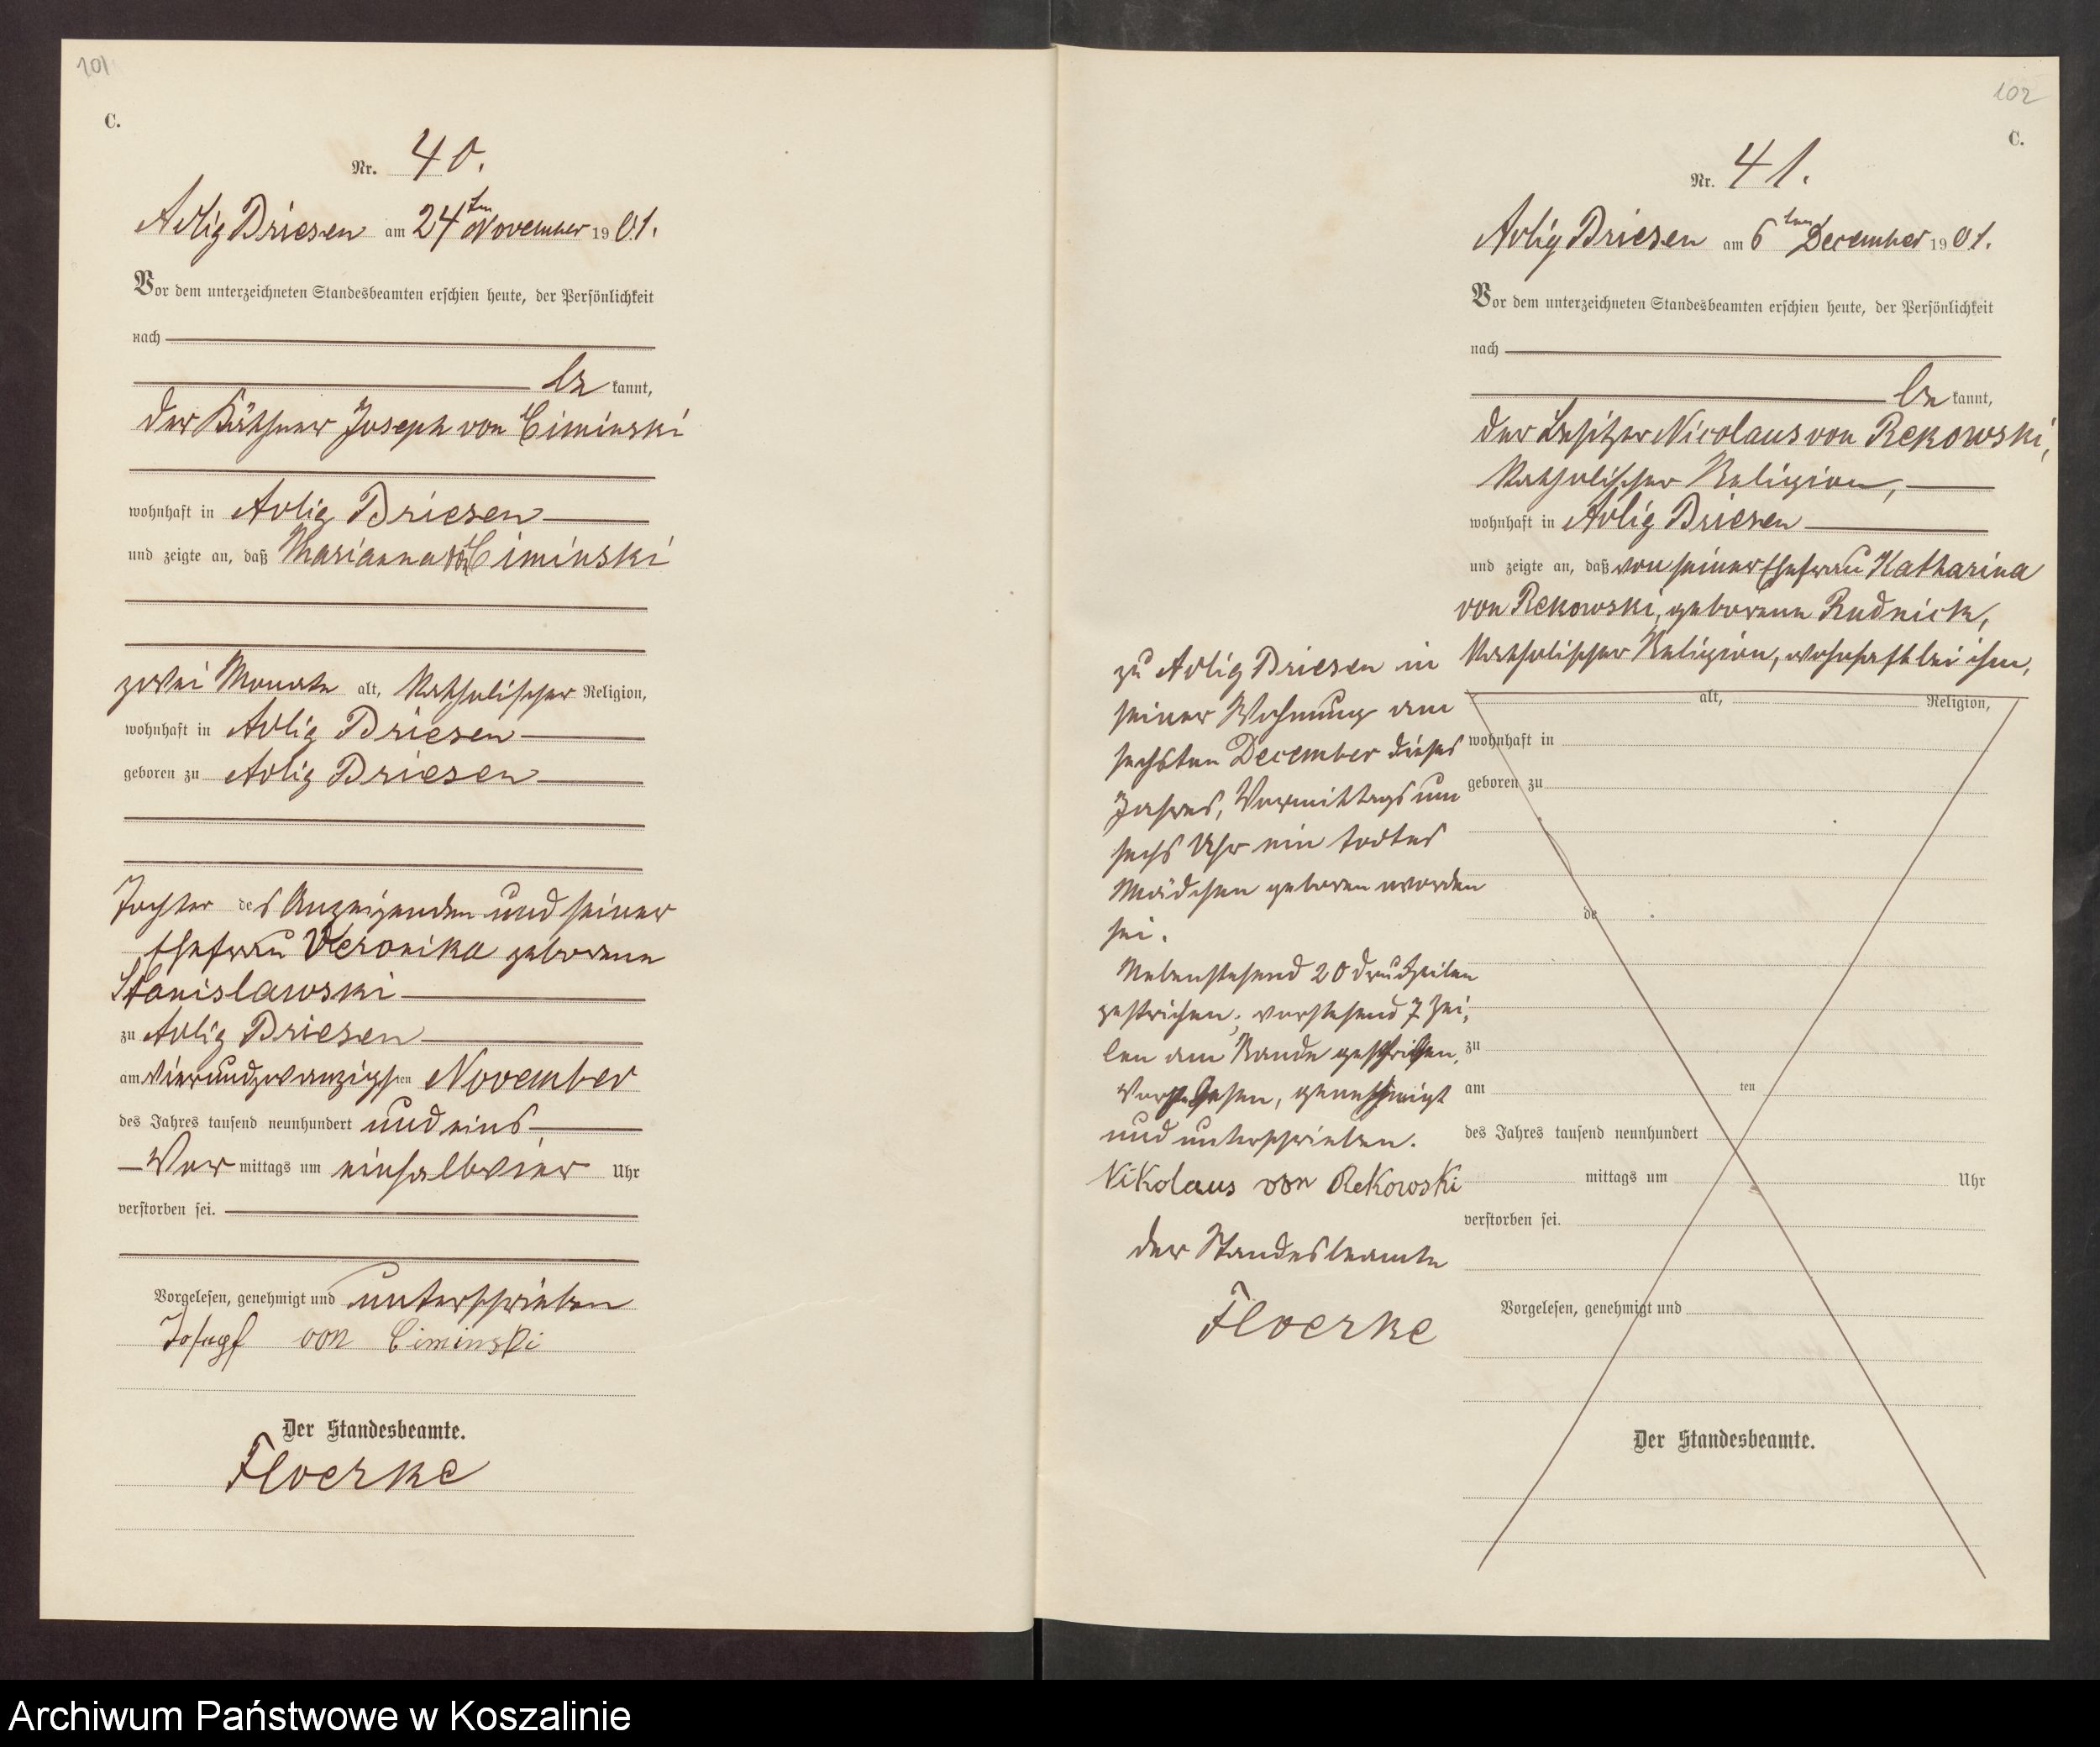 101
C.
Nr. 40.
Adlig Briesen am 24ten November 1901.
Vor dem unterzeichneten Standesbeamten erschien heute, der Persönlichkeit
nach
be kannt,
der Käthner Joseph von Ciminski
wohnhaft in Adlig Briesen
und zeigte an, daß Marianna von Ciminski
zwei Monate alt, katholischer Religion,
wohnhaft in Adlig Briesen
geboren zu Adlig Briesen
Tochter des Anzeigenden und seiner
Ehefrau Veronika geborene
Stanislawski
zu Adlig Briesen
am vierundzwanzigsten November
des Jahres tausend neunhundert und eins,
Vor mittags um einhalbvier Uhr
verstorben sei.
Vorgelesen, genehmigt und unterschrieben
Joseph von Ciminski
Der Standesbeamte.
Floerke
102
C.
Nr. 41.
Adlig Briesen am 6ten December 1901.
Vor dem unterzeichneten Standesbeamten erschien heute, der Persönlichkeit
nach
be kannt,
der Besitzer Nicolaus von Rekowski,
katholischer Religion,
wohnhaft in Adlig Briesen
und zeigte an, daß von seiner Ehefrau Katharina
von Rekowski, geborene Rudnick,
katholischer Religion, wohnhaft bei ihm,
zu Adlig Briesen in
seiner Wohnung am
sechsten December dieses
Jahres, Vormittags um
sechs Uhr ein todtes
Mädchen geboren worden
sei.
Nebenstehend 20 Druckzeilen
gestrichen; vorstehend 7 Zei-
len am Rande geschrieben.
Vorgelesen, genehmigt
und unterschrieben.
Nikolaus von Rekowski
der Standesbeamte
Floerke
alt, Religion,
wohnhaft in
geboren zu
de
zu
am ten
des Jahres tausend neunhundert
mittags um Uhr
verstorben sei.
Vorgelesen, genehmigt und
Der Standesbeamte.
Archiwum Państwowe w Koszalinie